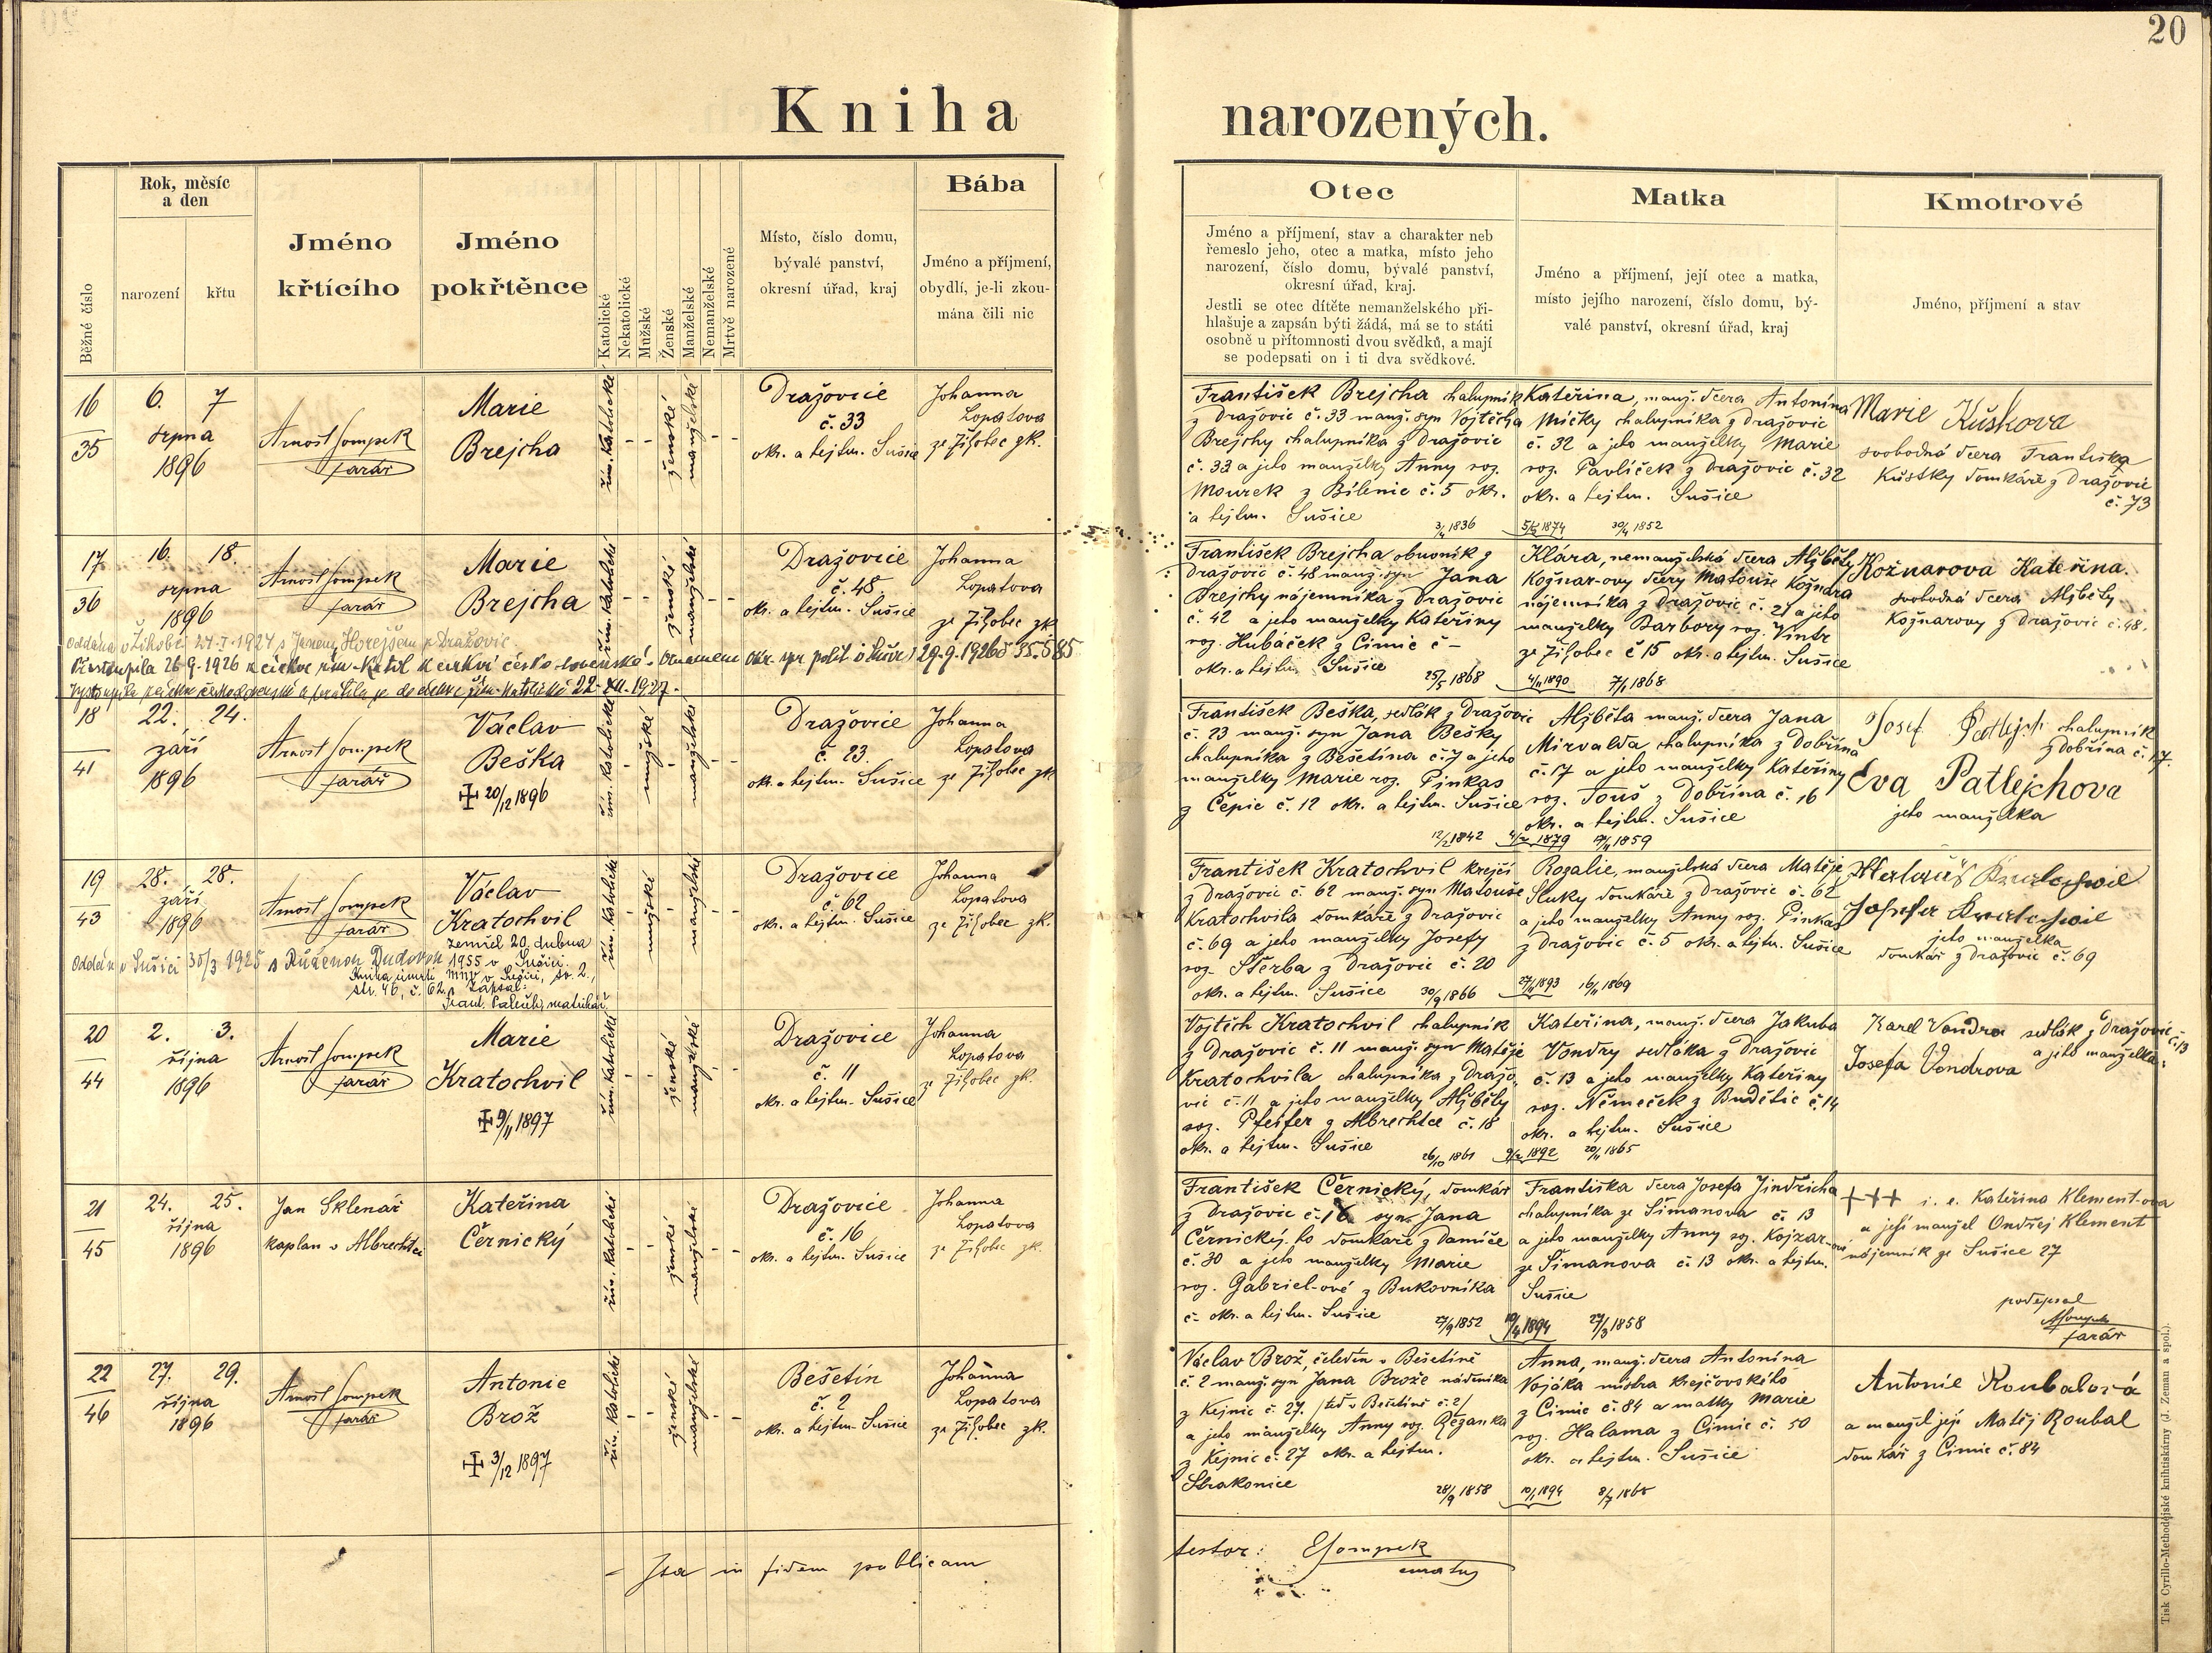 20
Kniha narozených.
Běžné číslo
Rok, měsíc
a den
narození
křtu
Jméno
křtícího
Jméno
pokřtěnce
Katolické
Nekatolické
Mužské
Ženské
Manželské
Nemanželské
Mrtvě narozené
Místo, číslo domu,
bývalé panství,
okresní úřad, kraj
Bába
Jméno a příjmení,
obydlí, je-li zkou-
mána čili nic
Otec
Jméno a příjmení, stav a charakter neb
řemeslo jeho, otec a matka, místo jeho
narození, číslo domu, bývalé panství,
okresní úřad, kraj.
Jestli se otec dítěte nemanželského při-
hlašuje a zapsán býti žádá, má se to státi
osobně u přítomnosti dvou svědků, a mají
se podepsati on i ti dva svědkové.
Matka
Jméno a příjmení, její otec a matka,
místo jejího narození, číslo domu, bý-
valé panství, okresní úřad, kraj
Kmotrové
Jméno, příjmení a stav
16
35
6. 7
srpna
1896
Arnošt Sompek
farář
Marie
Brejcha
řím. katolické
ženské
manželské
Dražovice
č. 33
okr. a hejtm. Sušice
Johanna
Lopatova
ze Žihobec zk.
František Brejcha chalupník
z Dražovic č. 33 manž. syn Vojtěcha
Brejchy chalupníka z Dražovic
č. 33 a jeho manželky Anny roz.
Mourek z Bílenic č. 5 okr.
a hejtm. Sušice
3/4 1836
Kateřina, manž. dcera Antonína
Mičky chalupníka z Dražovic
č. 32 a jeho manželky Marie
roz. Pavlíček z Dražovic č. 32
okr. a hejtm. Sušice
1874 30/4 1852
Marie Kůškova
svobodná dcera Františka
Kůstky domkáře z Dražovic
č. 73
17
36
16. 18.
srpna
1896
Arnošt Sompek
farář
Marie
Brejcha
řím. katolické
ženské
manželské
Dražovice
č. 48
okr. a hejtm. Sušice
Johanna
Lopatova
ze Žihobec zk
Oddána v Žihobci 27.I.1924 s Janem Horejšem z Dražovic.
Vystoupila 26.9.1926 z církve řím. katol. k církvi česko-slovenské. Oznámeno okr. spr. polit. 29.9.1926
Vystoupila z církve československé a vrátila se do církve řím. katolické 22. XII. 1927.
František Brejcha obuvník z
Dražovic č. 48 manž. syn Jana
Brejchy nájemníka z Dražovic
č. 42 a jeho manželky Kateřiny
roz. Hubáček z Čimic č –
okr. a hejtm. Sušice
25/5 1868
Klára, nemanželská dcera Alžběty
Kožnar-ovy dcery Matouše Kožnara
nájemníka z Dražovic č. 21 a jeho
manželky Barbory roz. Vintr
ze Žihobec č 15 okr. a hejtm. Sušice
4/11 1890 7/1 1868
Kožnarova Kateřina
svobodná dcera Alžběty
Kožnarovy z Dražovic č. 48.
18
41
22. 24.
září
1896
Arnošt Sompek
farář
Václav
Beška
✠ 20/12 1896
řím. katolické
mužské
manželské
Dražovice
č. 23.
okr. a hejtm. Sušice
Johanna
Lopatova
ze Žihobec zk
František Beška, sedlák z Dražovic
č. 23 manž. syn Jana Bešky
chalupníka z Bešetína č. 7 a jeho
manželky Marie roz. Pinkas
z Čepic č. 12 okr. a hejtm. Sušice
12/2 1842
Alžběta manž. dcera Jana
Mirvalda, chalupníka z Dobřína
č. 17 a jeho manželky Kateřiny
roz. Touš z Dobřína č. 16
okr. a hejtm. Sušice
1879 1859
Josef Patlejch chalupník
z Dobřína č. 17.
Eva Patlejchova
jeho manželka
19
43
28. 28.
září
1896
Arnošt Sompek
farář
Václav
Kratochvil
zemřel 20. dubna
1955 v Sušici.
Kniha úmrtí MNV v Sušici, sv. 2.,
str. 46, č. 62. Zapsal:
matrikář
Oddán v Sušici 30/3 1925 s Růženou Dudovou
řím. katolické
mužské
manželské
Dražovice
č. 62
okr. a hejtm. Sušice
Johanna
Lopatova
ze Žihobec zk.
František Kratochvil krejčí
z Dražovic č. 62 manž. syn Matouše
Kratochvila domkáře z Dražovic
č. 69 a jeho manželky Josefy
roz. Štěrba z Dražovic č. 20
okr. a hejtm. Sušice 30/9 1866
Rozalie, manželská dcera Matěje
Sluky domkáře z Dražovic č. 62
a jeho manželky Anny roz. Pinkas
z Dražovic č. 5 okr. a hejtm. Sušice
27/11 1893 16/11 1869
Matouš Kratochvil
Josefa Kratochvil
jeho manželka
domkář z Dražovic č. 69
20
44
2. 3.
října
1896
Arnošt Sompek
farář
Marie
Kratochvil
✠ 9/11 1897
řím. katolické
ženské
manželské
Dražovice
č. 11
okr. a hejtm. Sušice
Johanna
Lopatova
ze Žihobec zk.
Vojtěch Kratochvil chalupník
z Dražovic č. 11 manž. syn Matěje
Kratochvila chalupníka z Dražo-
vic č. 11 a jeho manželky Alžběty
roz. Pfeifer z Albrechtce č. 18
okr. a hejtm. Sušice
26/10 1861
Kateřina, manž. dcera Jakuba
Vondry sedláka z Dražovic
č. 13 a jeho manželky Kateřiny
roz. Němeček z Budětic č. 14
okr. a hejtm. Sušice
9/2 1892 20/11 1865
Karel Vondra sedlák z Dražovic č. 13
a jeho manželka:
Josefa Vondrova
21
45
24. 25.
října
1896
Jan Sklenář
kaplan v Albrechtci
Kateřina
Černický
řím. katolické
ženské
manželské
Dražovice
č. 16
okr. a hejtm. Sušice
Johanna
Lopatova
ze Žihobec zk.
František Černický, domkář
z Dražovic č. 16 syn Jana
Černický-ho domkáře z Damíče
č. 30 a jeho manželky Marie
roz. Gabriel-ové z Bukovníka
č – okr. a hejtm. Sušice
27/9 1852
Františka dcera Josefa Jindřicha
chalupníka ze Šimanova č. 13
a jeho manželky Anny roz. Kojzar-ové
ze Šimanova č. 13 okr. a hejtm.
Sušice
1894 27/3 1858
+++ i. e. Kateřina Klement-ova
a její manžel Ondřej Klement
nájemník ze Sušice 27
podepsal
ASompek
farář
22
46
27. 29.
října
1896
Arnošt Sompek
farář
Antonie
Brož
✠ 3/12 1897
řím. katolické
ženské
manželské
Bešetín
č. 2
okr. a hejtm. Sušice
Johanna
Lopatova
ze Žihobec zk.
Václav Brož, čeledín v Bešetíně
č. 2 manž. syn Jana Brože nádeníka
z Kejnic č. 27. /teď v Bešetíně č. 2/
a jeho manželky Anny roz. Řežanka
z Kejnic č. 27 okr. a hejtm.
Strakonice
28/9 1858
Anna, manž. dcera Antonína
Vojáka mistra krejčovského
z Čimic č. 84 a matky Marie
roz. Halama z Čimic č. 50
okr. a hejtm. Sušice
10/1 1894 8/7 1868
Antonie Roubalová
a manžel její Matěj Roubal
domkář z Čimic č. 84
– Ita in fidem publicam
testor: ESompek
curatus
Tisk Cyrillo-Methodějské knihtiskárny (J. Zeman a spol.).